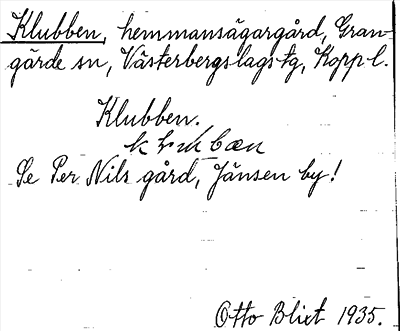 Klubben, hemmansägargård, Gran-
gärde sn, Västerbergslags tg, Koppl.
Klubben.
Se Per Nils gård, Jänsen by!
Otto Blixt 1935.